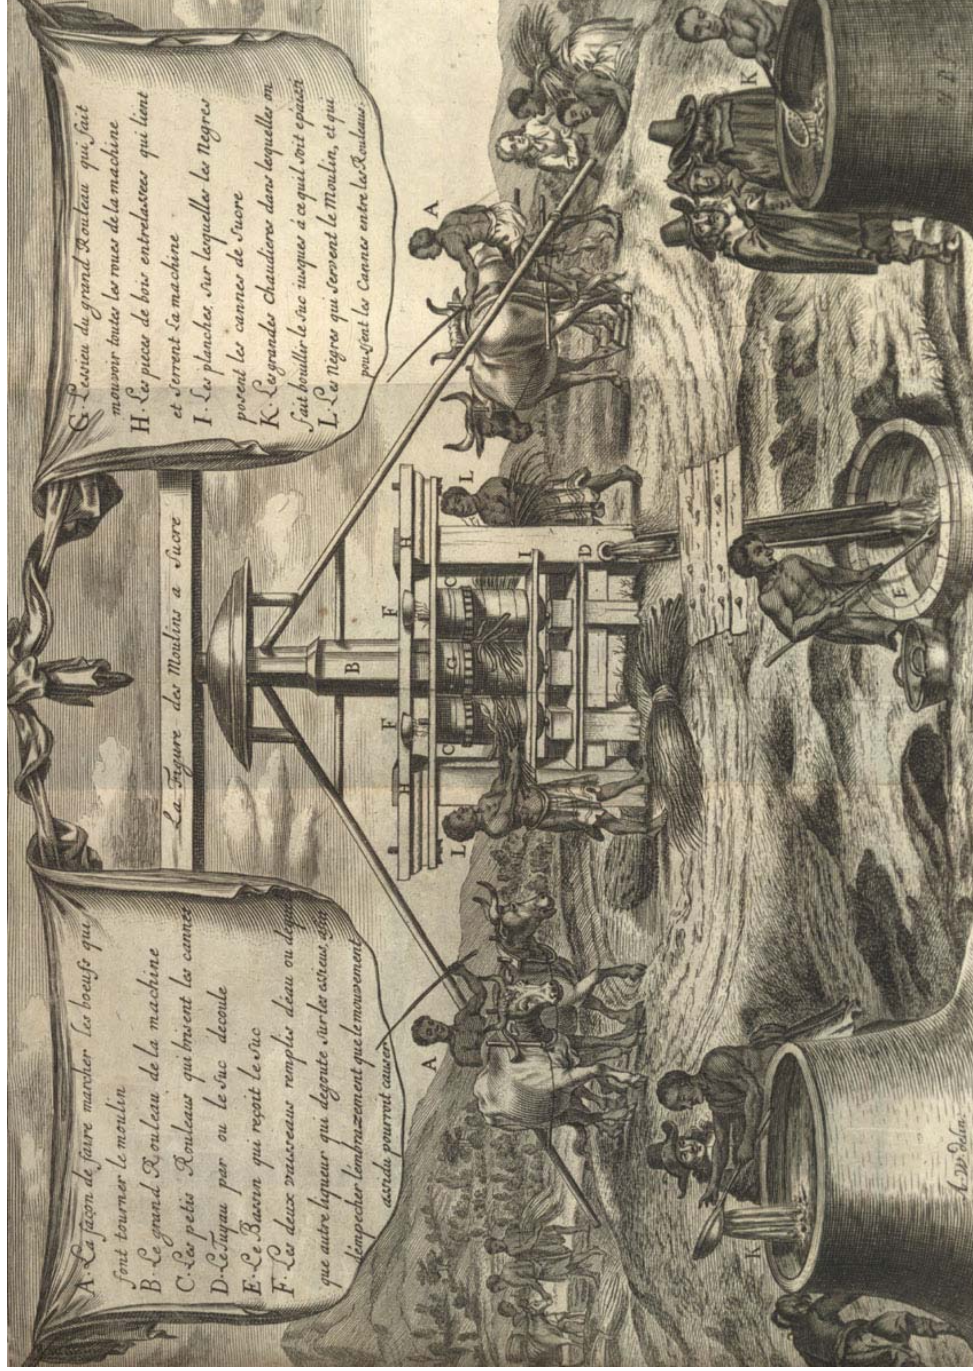 La Figure des Moulins a Sucre
A. La façon de faire marcher les boeufs qui
font tourner le moulin
B. Le grand Rouleau de la machine
C. Les petis Rouleaus qui brisent les cannes
D. Le Tuyau par ou le Suc decoule
E. Le Bassin qui reçoit le Suc
F. Les deux vaisseaus remplis d'eau ou de quelque
que autre liqueur qui degoute sur les essieus, afin
d'empecher l'embrazement que le mouvement
assidu pourroit causer
G. L'essieu du grand Rouleau qui fait
mouvoir toutes les roues de la machine
H. Les pieces de bois entrelassees qui lient
et serrent la machine
I. Les planches, sur lequelles les Negres
posent les cannes de Sucre
K. Les grandes chaudieres dans lequelles on
fait bouillir le suc iusques à ce qu'il soit epaissi
L. Les Negres qui servent le Moulin, et qui
poussent les Cannes entre les Rouleaus.
A
A
B
F
F
H
H
C
G
C
L
L
I
D
E
K
K
A. W. delin.